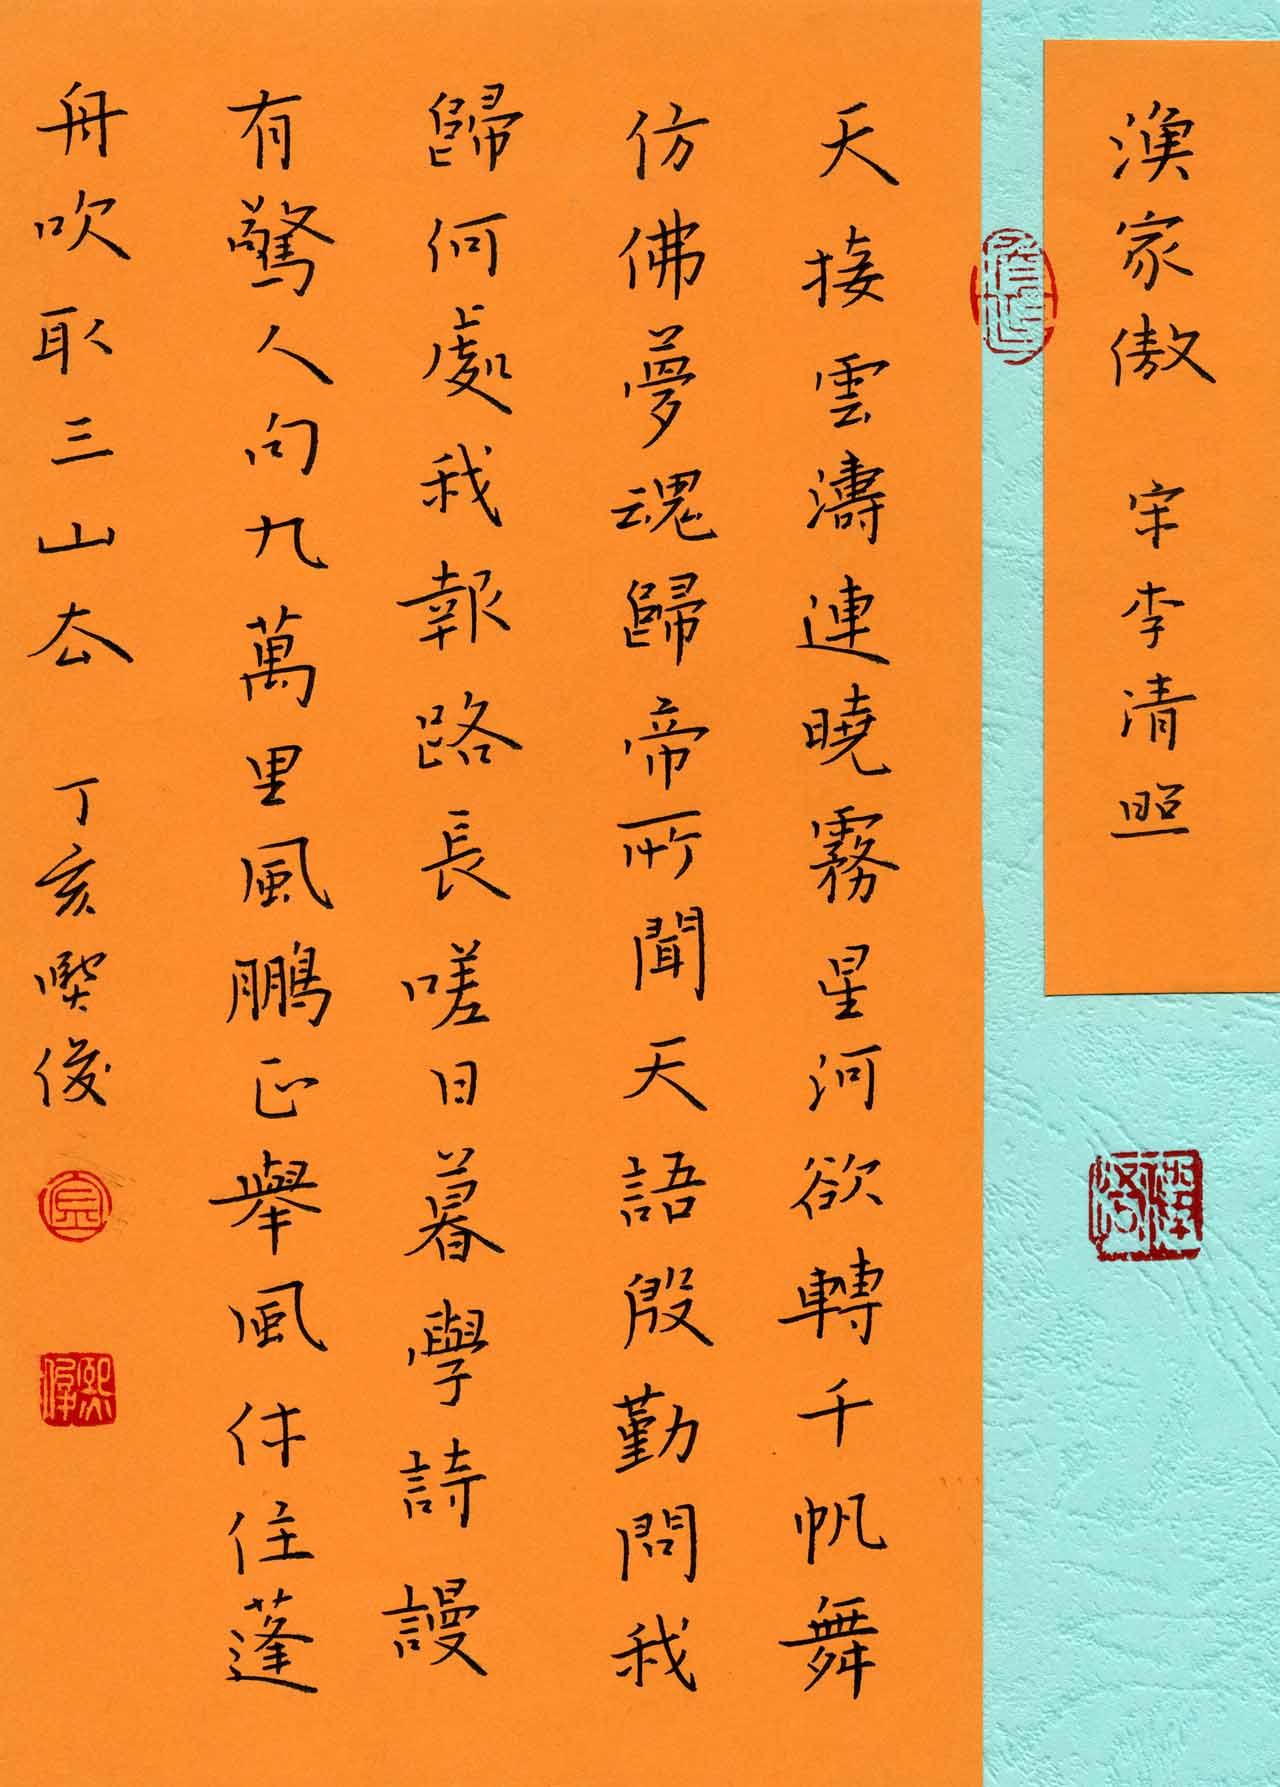 漁家傲 宋李清照
天接雲濤連曉霧星河欲轉千帆舞
仿佛夢魂歸帝所聞天語殷勤問我
歸何處我報路長嗟日暮學詩謾
有驚人句九萬里風鵬正舉風休住蓬
舟吹取三山去 丁亥熙俊